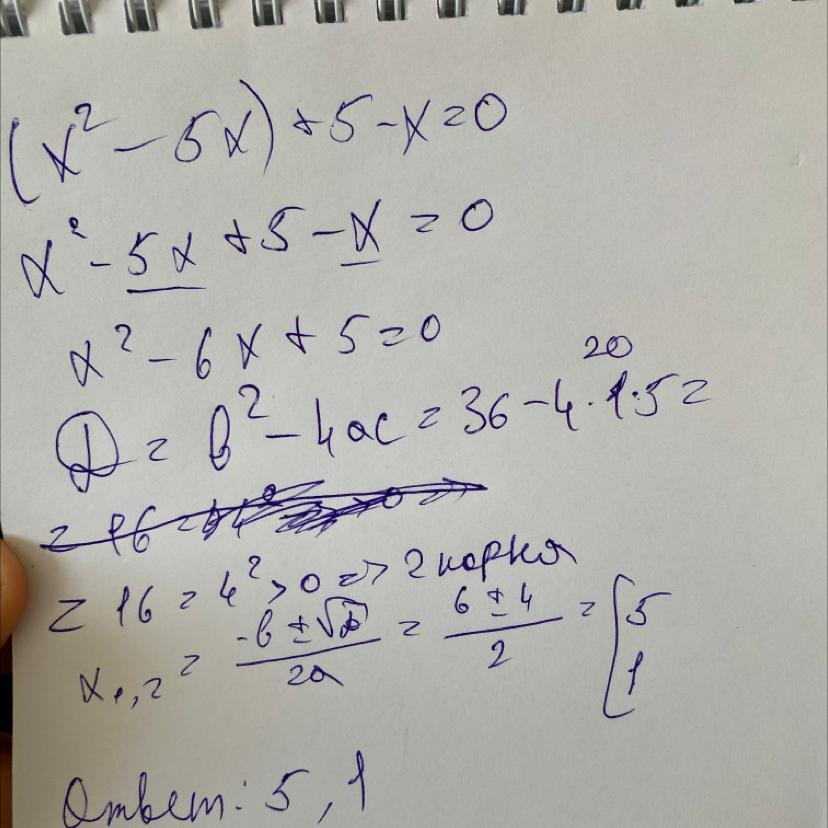 (x² - 5x) + 5 - x = 0
x² - 5x + 5 - x = 0
x² - 6x + 5 = 0
20
D = b² - 4ac = 36 - 4·1·5 =
= 16 = 4² > 0 => 2 корня
x₁,₂ = (-b ± √D)/2a = (6 ± 4)/2 = [5 1
Ответ: 5, 1